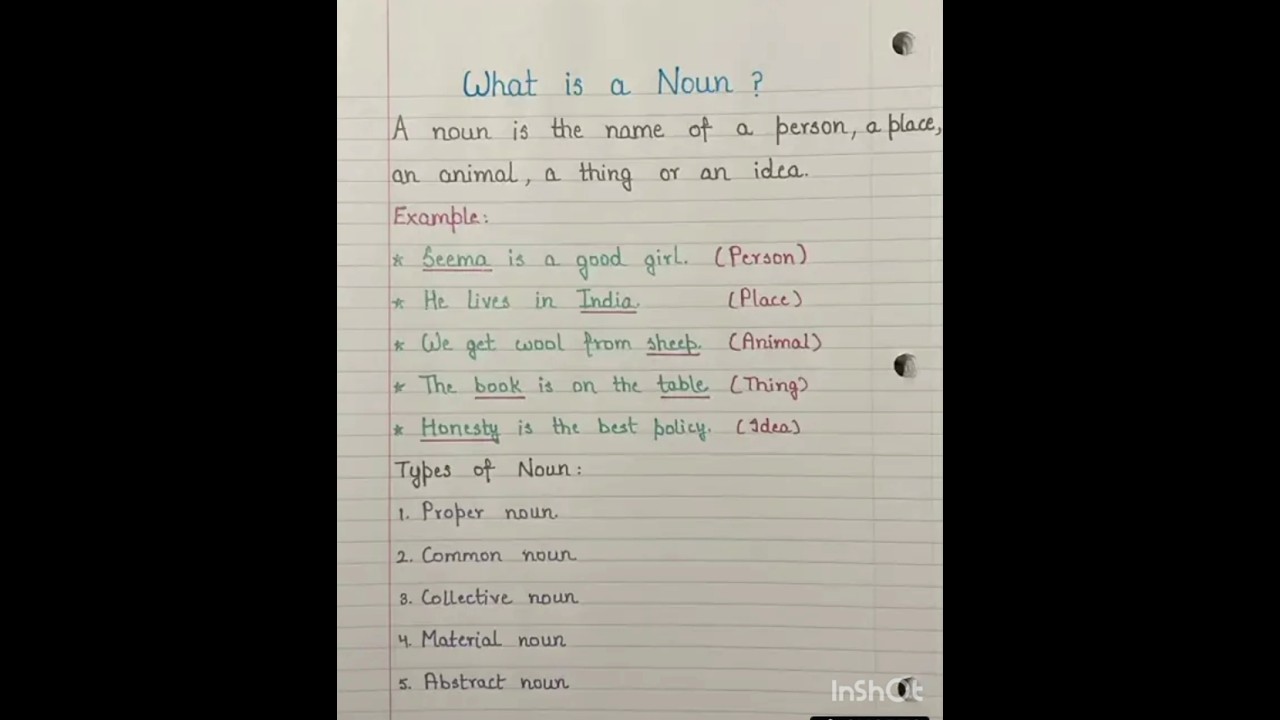 What is a Noun ?
A noun is the name of a person, a place,
an animal, a thing or an idea.
Example:
* Seema is a good girl. (Person)
* He lives in India. (Place)
* We get wool from sheep. (Animal)
* The book is on the table (Thing)
* Honesty is the best policy. (Idea)
Types of Noun:
1. Proper noun.
2. Common noun
3. Collective noun
4. Material noun
5. Abstract noun
InShOt